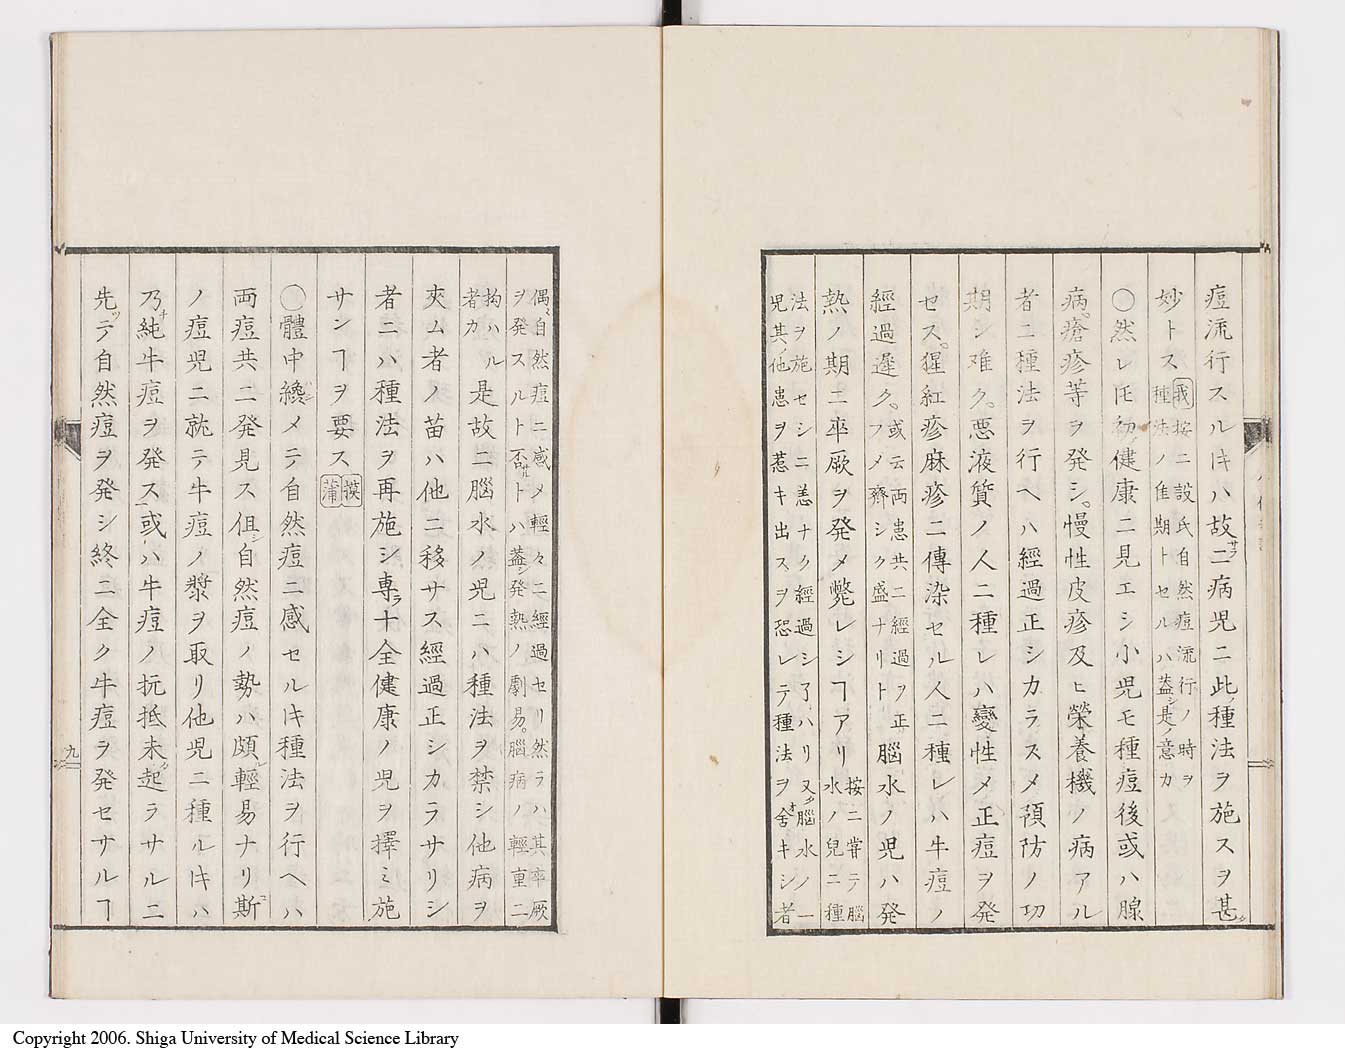 痘流行スルキハ故ニ病児ニ此種法ヲ施スヲ甚
妙トス
我按ニ設氏自然痘流行ノ時ヲ
種法ノ佳期トセルハ蓋シ是ノ意カ
〇然レ𪜈初健康ニ見エシ小児モ種痘後或ハ腺
病。瘡疹等ヲ発シ。慢性皮疹及ヒ榮養機ノ病アル
者ニ種法ヲ行ヘハ經過正シカラスメ預防ノ功
期シ难ク。悪液質ノ人ニ種レハ變性メ正痘ヲ発
セス。猩紅疹麻疹ニ傳染セル人ニ種レハ牛痘ノ
經過遅ク。
或云両患共ニ經過ヲ正
フメ齊シク盛ナリト
腦水ノ児ハ発
熱ノ期ニ卒厥ヲ発メ斃レシヿアリ
按ニ甞テ腦
水ノ兒ニ種
法ヲ施セシニ恙ナク經過シ了ハリ又腦水ノ一
児其ノ他患ヲ惹キ出スヲ恐レテ種法ヲ舍キシ者
偶〻自然痘ニ感メ輕々ニ經過セリ然ラハ其卒厥
ヲ発スルト否サルトハ蓋シ発熱ノ劇易。腦病ノ輕重ニ
拘ハル
者カ
是故ニ腦水ノ児ニハ種法ヲ禁シ他病ヲ
夾ム者ノ苗ハ他ニ移サス經過正シカラサリシ
者ニハ種法ヲ再施シ専ラ十全健康ノ児ヲ擇ミ施
サンヿヲ要ス
摸
蒲
〇體中纔メテ自然痘ニ感セルキ種法ヲ行ヘハ
両痘共ニ発見ス但シ自然痘ノ勢ハ頗ル輕易ナリ斯
ノ痘児ニ就テ牛痘ノ漿ヲ取リ他児ニ種ルキハ
乃チ純牛痘ヲ発ス或ハ牛痘ノ抗抵未タ起ラサルニ
先ツテ自然痘ヲ発シ終ニ全ク牛痘ヲ発セサルヿ
九
Copyright 2006. Shiga University of Medical Science Library